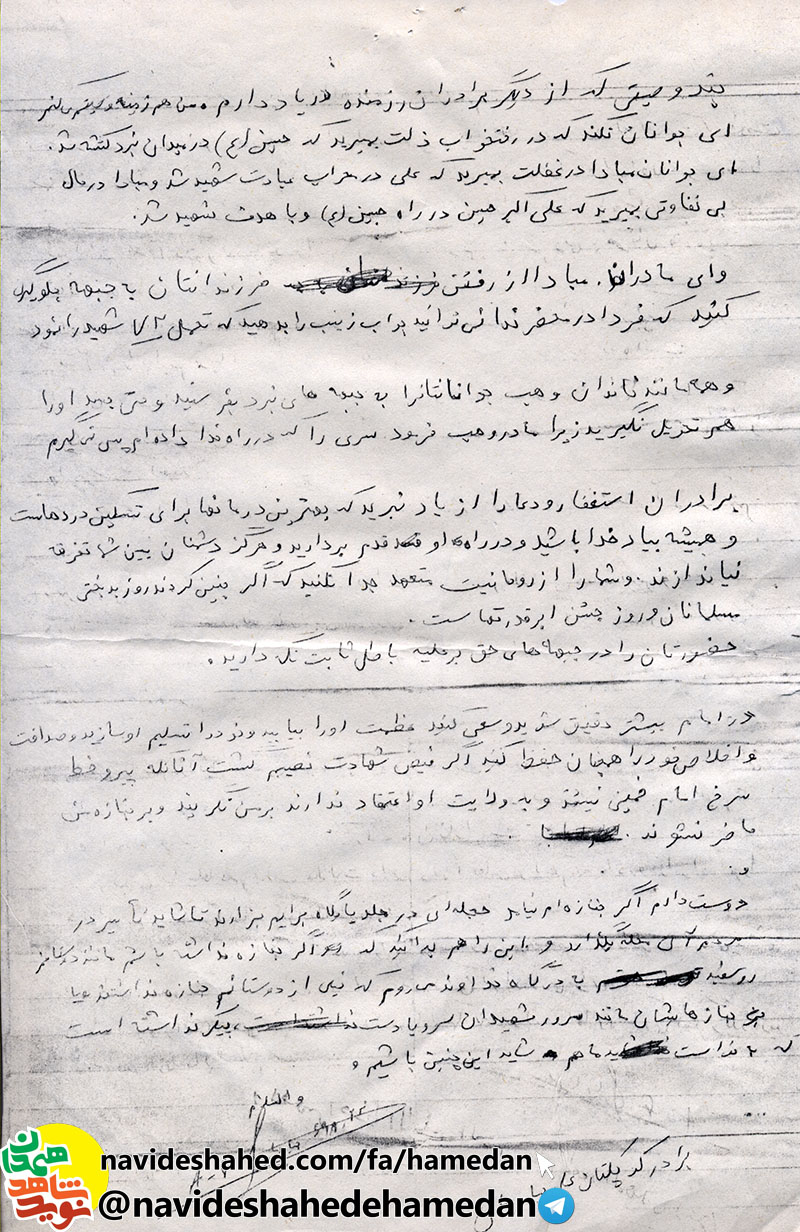 چند وصیتی که از دیگر برادران رزمنده در یاد دارم من هم زمزمه و
ای جوانان نکند که در رختخواب ذلت بمیرید که حسین (ع) در میدان نبرد کشته شد.
ای جوانان مبادا در غفلت بمیرید که علی در محراب عبادت شهید شد و مبادا در حال
بی تفاوتی بمیرید که علی اکبر حسین در راه حسین (ع) و با هدف شهید شد.
و ای مادران مبادا از رفتن فرزندانتان به جبهه جلوگیری
کنید که فردا در محضر خدا نمی توانید جواب زینب را بدهید که تحمل ۷۲ شهید را نمود
و همه مانند خاندان وهب جوانانتانرا به جبهه های نبرد بفرستید و حتی جسد او را
هم تحویل نگیرید زیرا مادر وهب فرمود سری را که در راه خدا داده ام پس نمی گیرم
برادران استغفار و دعا را از یاد نبرید که بهترین درمانها برای تسکین دردهاست
و همیشه بیاد خدا باشید و در راه او قدم بردارید و هرگز دشمنان بین شما تفرقه
نیاندازند. و شما را از روحانیت متعهد جدا نکنید که اگر چنین کردند روز بدبختی
مسلمانان و روز جشن ابرقدرتهاست.
حضورتان را در جبهه های حق بر علیه باطل ثابت نگه دارید.
در امام بیشتر دقیق شوید و سعی کنید عظمت او را بیابید و خود را تسلیم او سازید و صداقت
و اخلاص خود را همچنان حفظ کنید اگر فیض شهادت نصیبم گشت آنانکه پیرو خط
سرخ امام خمینی نیستند و به ولایت او اعتقاد ندارند بر من نگریند و بر جنازه من
حاضر نشوند.
و.
دوست دارم اگر جنازه ام نیامد حجله ای در جلو پایگاه برایم بزارند تا شاید تأثیر در
مردم آن محله بگذارد و این را هم بدانید که اگر جنازه نداشته باشم مانند
روسفید به درگاه خداوند می روم که خیلی از دوستانم جنازه نداشتند و یا
جنازه هاشان مانند سرور شهیدان سر و یا دست پیکر نداشته است
که خداست ما هم شاید این چنین باشیم و
والسلام
...
برادر کوچکتان
navideshahed.com/fa/hamedan
@navideshahedehamedan
نوید شاهد همدان